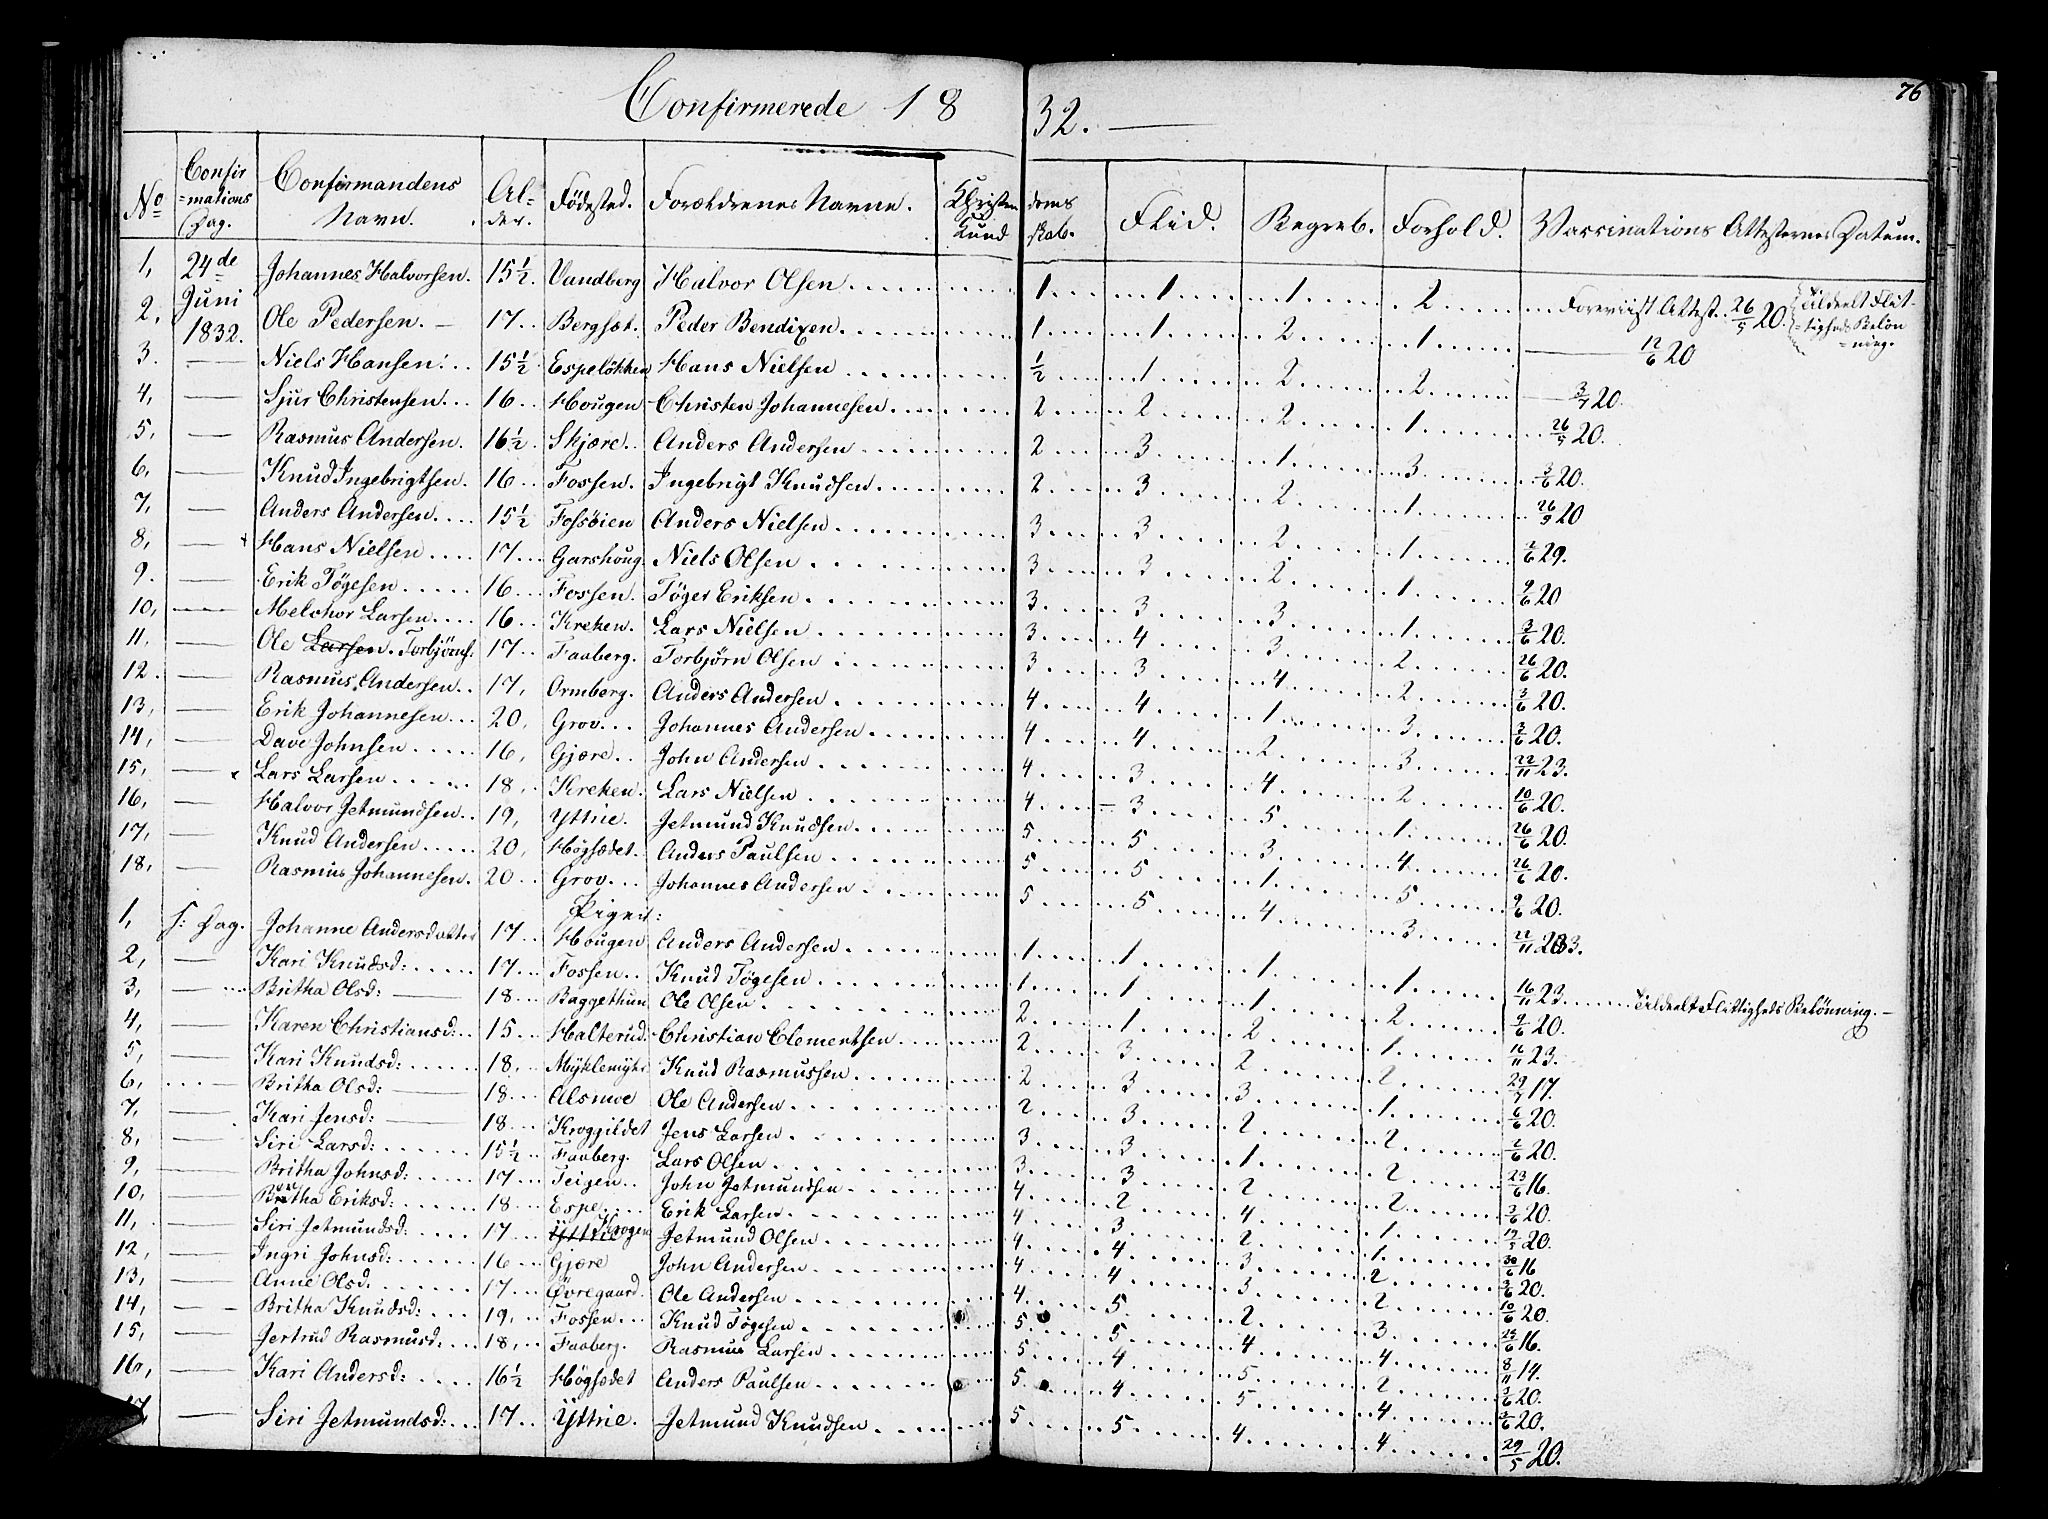 76
Confirmerede 1832.
No Confirmations Dag. Confirmandens Navn. Alder. Fødested. Forældrenes Navne. Christendoms Kundskab. Flid. Begreb. Forhold. Vaccinations Attesternes Datum.
1, 24de Juni 1832. Johannes Halvorsen. 15½. Vandberg Halvor Olsen 1 1 1 2 Foreviist Attest. 26/5 20. Tildeelt Flittigheds Belønning.
2, Ole Pedersen. 17. Bergset. Peder Bendixen 1 1 2 1 — 12/6 20
3. — Niels Hansen. 15½ Espeløkken Hans Nielsen ½ 1 2 2 — 3/7 20.
4, — Sjur Christensen. 16. Hougen Christen Johannesen 2 2 2 1 26/5 20.
5, — Rasmus Andersen. 16½. Skjære. Anders Andersen 2 3 1 3 3/6 20.
6, — Knud Ingebrigtsen. 16. Fossen. Ingebrigt Knudsen 2 3 2 1 26/9 20
7, — Anders Andersen. 15½ Fossøien Anders Nielsen 3 3 2 1 2/6 29.
8, — Hans Nielsen 17. Garshoug Niels Olsen 3 3 2 1 9/6 20
9. — Erik Tøgesen 16. Fossen. Tøger Eriksen 3 3 3 1 3/6 20.
10, — Melchor Larsen 16. Kreken. Lars Nielsen 3 4 3 2 26/6 20.
11. — Ole Larsen. Torbjørns: 17. Faaberg. Torbjørn Olsen 3 3 4 2 3/6 20.
12. — Rasmus Andersen. 17, Ormberg. Anders Andersen 4 4 1 3 3/6 20.
13, — Erik Johannesen. 20, Grov. Johannes Andersen 4 4 2 3 22/11 23.
14, — Dave Johnsen 16, Gjære. John Andersen 4 3 4 2 10/6 20.
15, — Lars Larsen 18, Kreken. Lars Nielsen 4 3 5 1 26/6 20.
16, — Halvor Jetmundsen. 19, Yttrie. Jetmund Knudsen 5 5 3 4 26/6 20.
17, — Knud Andersen 20, Høgsædet. Anders Paulsen 5 5 1 5 9/6 20.
18, — Rasmus Johannesen. 20. Grov. Johannes Andersen 5 5 4 3 22/11 23.
Piger:
1, s: Dag. Johanne Andersdatter 17. Hougen Anders Andersen 1 1 1 1 16/11 23. Tildeelt Flittigheds Belønning. —
2, — Kari Knudsd: 17. Fossen. Knud Tøgesen 1 1 1 2 9/6 20.
3, — Britha Olsd: 18. Baggethun Ole Olsen 2 1 2 1 16/11 23.
4, — Karen Christiansd: 15. Halterud. Christian Clementsen 2 3 2 2 29/7 17.
5, — Kari Knudsd: 18, Myklemyhr Knud Rasmussen 2 3 3 1 6/6 20.
6, — Britha Olsd: 18. Alsmoe Ole Andersen 2 3 2 2 2/6 20.
7, — Kari Jensd: 18. Krogjildet Jens Larsen 3 3 1 2 23/6 16.
8, — Siri Larsd: 15½ Faaberg. Lars Olsen 3 3 2 2 3/6 20.
9, — Britha Johnsd: 17. Teigen. John Jetmundsen 4 2 4 1 19/5 20.
10, — Britha Eriksd: 18. Espe Erik Larsen 4 3 2 1 30/6 16
11, — Siri Jetmundsd: 17. Yttrie Krogen Jetmund Olsen 4 4 3 2 3/6 20.
12, — Ingri Johnsd: 16. Gjære John Andersen 4 4 3 2 10/6 20.
13, — Anne Olsd: 17. Øvregaard. Ole Andersen 4 5 2 3 23/6 16.
14, — Britha Knudsd: 19, Fossen. Knud Tøgesen 5 5 4 4 8/11 14.
15, — Jertrud Rasmusd: 18, Faaberg. Rasmus Larsen 5 4 5 2 3/6 20.
16, — Kari Andersd: 16½ Høgsædet Anders Paulsen 5 4 5 4 3/6 20.
17, — Siri Jetmundsd: 17. Yttrie. Jetmund Knudsen 5 5 4 4 29/5 20.